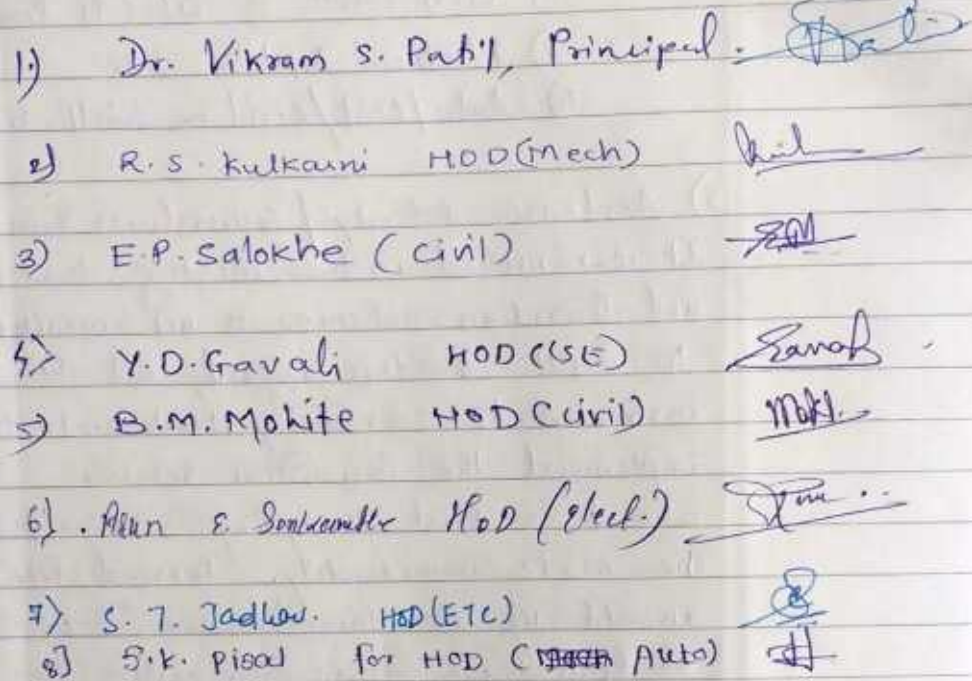 1.) Dr. Vikram S. Patil, Principal.
2) R.S. Kulkarni HOD(Mech)
3) E.P. Salokhe (Civil)
4) Y.D. Gavali HOD (CSE)
5) B.M. Mohite HOD (Civil)
6). HOD (Elect.)
7) S. T. Jadhav. HOD (ETC)
8] S.K. Pisal for HOD (Auto)